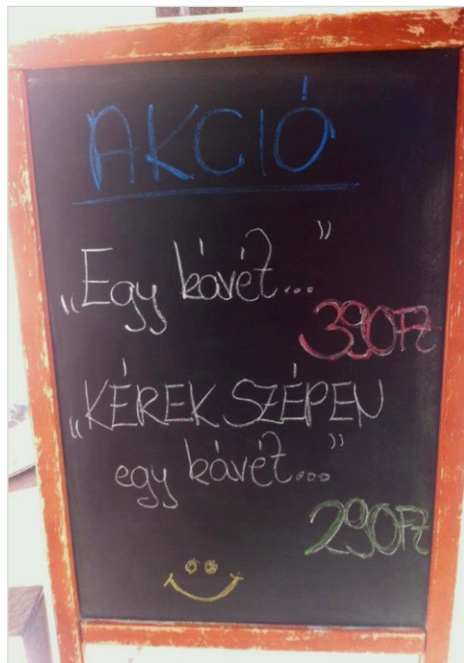 AKCIÓ
„Egy kávét...”
390Ft
„KÉREK SZÉPEN
egy kávét...”
290Ft